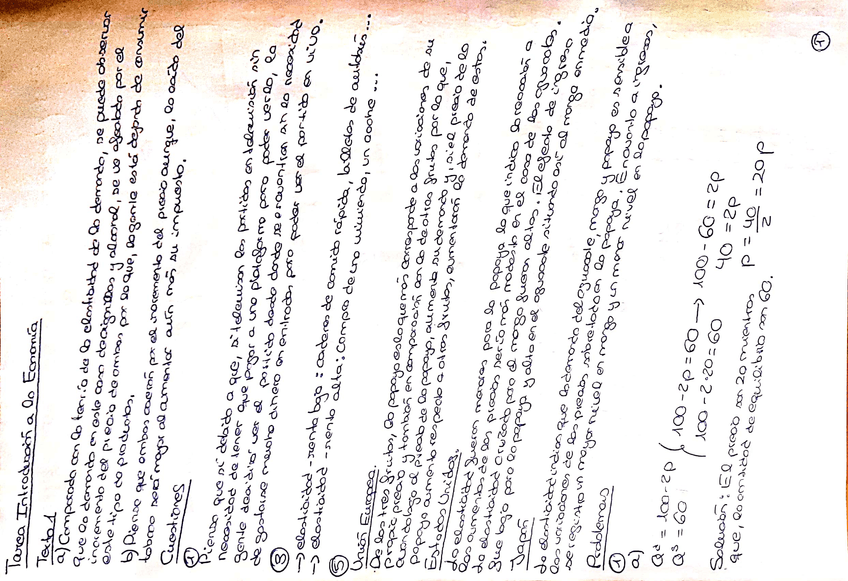 Tarea Introducción a la Economía
Texto 1
a) Comparado con la teoría de la elasticidad de la demanda, se puede observar
que la demanda en este caso de cigarrillos y alcohol, se ve afectada por el
incremento del precio de ambos por lo que, la gente está dejando de consumir
este tipo de productos.
b) Pienso que ambos caerán por el incremento del precio aunque, la caída del
tabaco será mayor al aumentar aún más su impuesto.
Cuestiones
① Pienso que sí debido a que, si televisan los partidos en televisión sin
necesidad de tener que pagar a una plataforma para poder verlo, la
gente decidirá ver el partido desde donde se encuentran sin la necesidad
de gastarse mucho dinero en entradas para poder ver el partido en vivo.
③
→ elasticidad - renta baja: cadenas de comida rápida, billetes de autobús...
→ elasticidad - renta alta: compra de una vivienda, un coche...
⑤
Unión Europea
De las tres frutas, la papaya es la que más corresponde a las variaciones de su
propio precio y también en comparación con la de otras frutas por lo que,
cuando baja el precio de la papaya, aumenta su demanda y, si el precio de la
papaya aumenta respecto a otras frutas, aumentará la demanda de estas.
Estados Unidos
La elasticidad fueron menores para la papaya lo que indica la reacción a
los aumentos de los precios sería más modesta en el caso de los aguacates.
La elasticidad cruzada para el mango fueron altas. El efecto de ingreso
fue bajo para la papaya y alto en el aguacate situando así al mango en medio.
Japón
La elasticidad indican que la demanda del aguacate, mango y papaya es sensible a
las variaciones de los precios, sobretodo en la papaya. En cuanto a ingresos,
se registra un mayor nivel en mango y un menor nivel en la papaya.
Problemas
①
a)
Qd = 100 - 2p
Qs = 60
100 - 2p = 60 → 100 - 60 = 2p
100 - 2·20 = 60
40 = 2p
p = 40/2 = 20p
Solución: El precio son 20 mientras
que, la cantidad de equilibrio son 60.
①